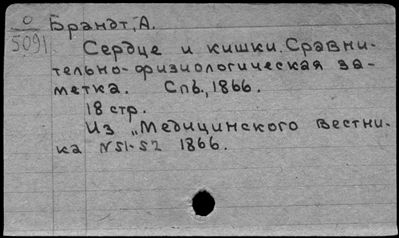 О
5091
Брандт, А.
Сердце и кишки. Сравни-
тельно-физиологическая за-
метка. Спб., 1866.
18 стр.
Из „Медицинского Вестни-
ка N 51-52 1866.